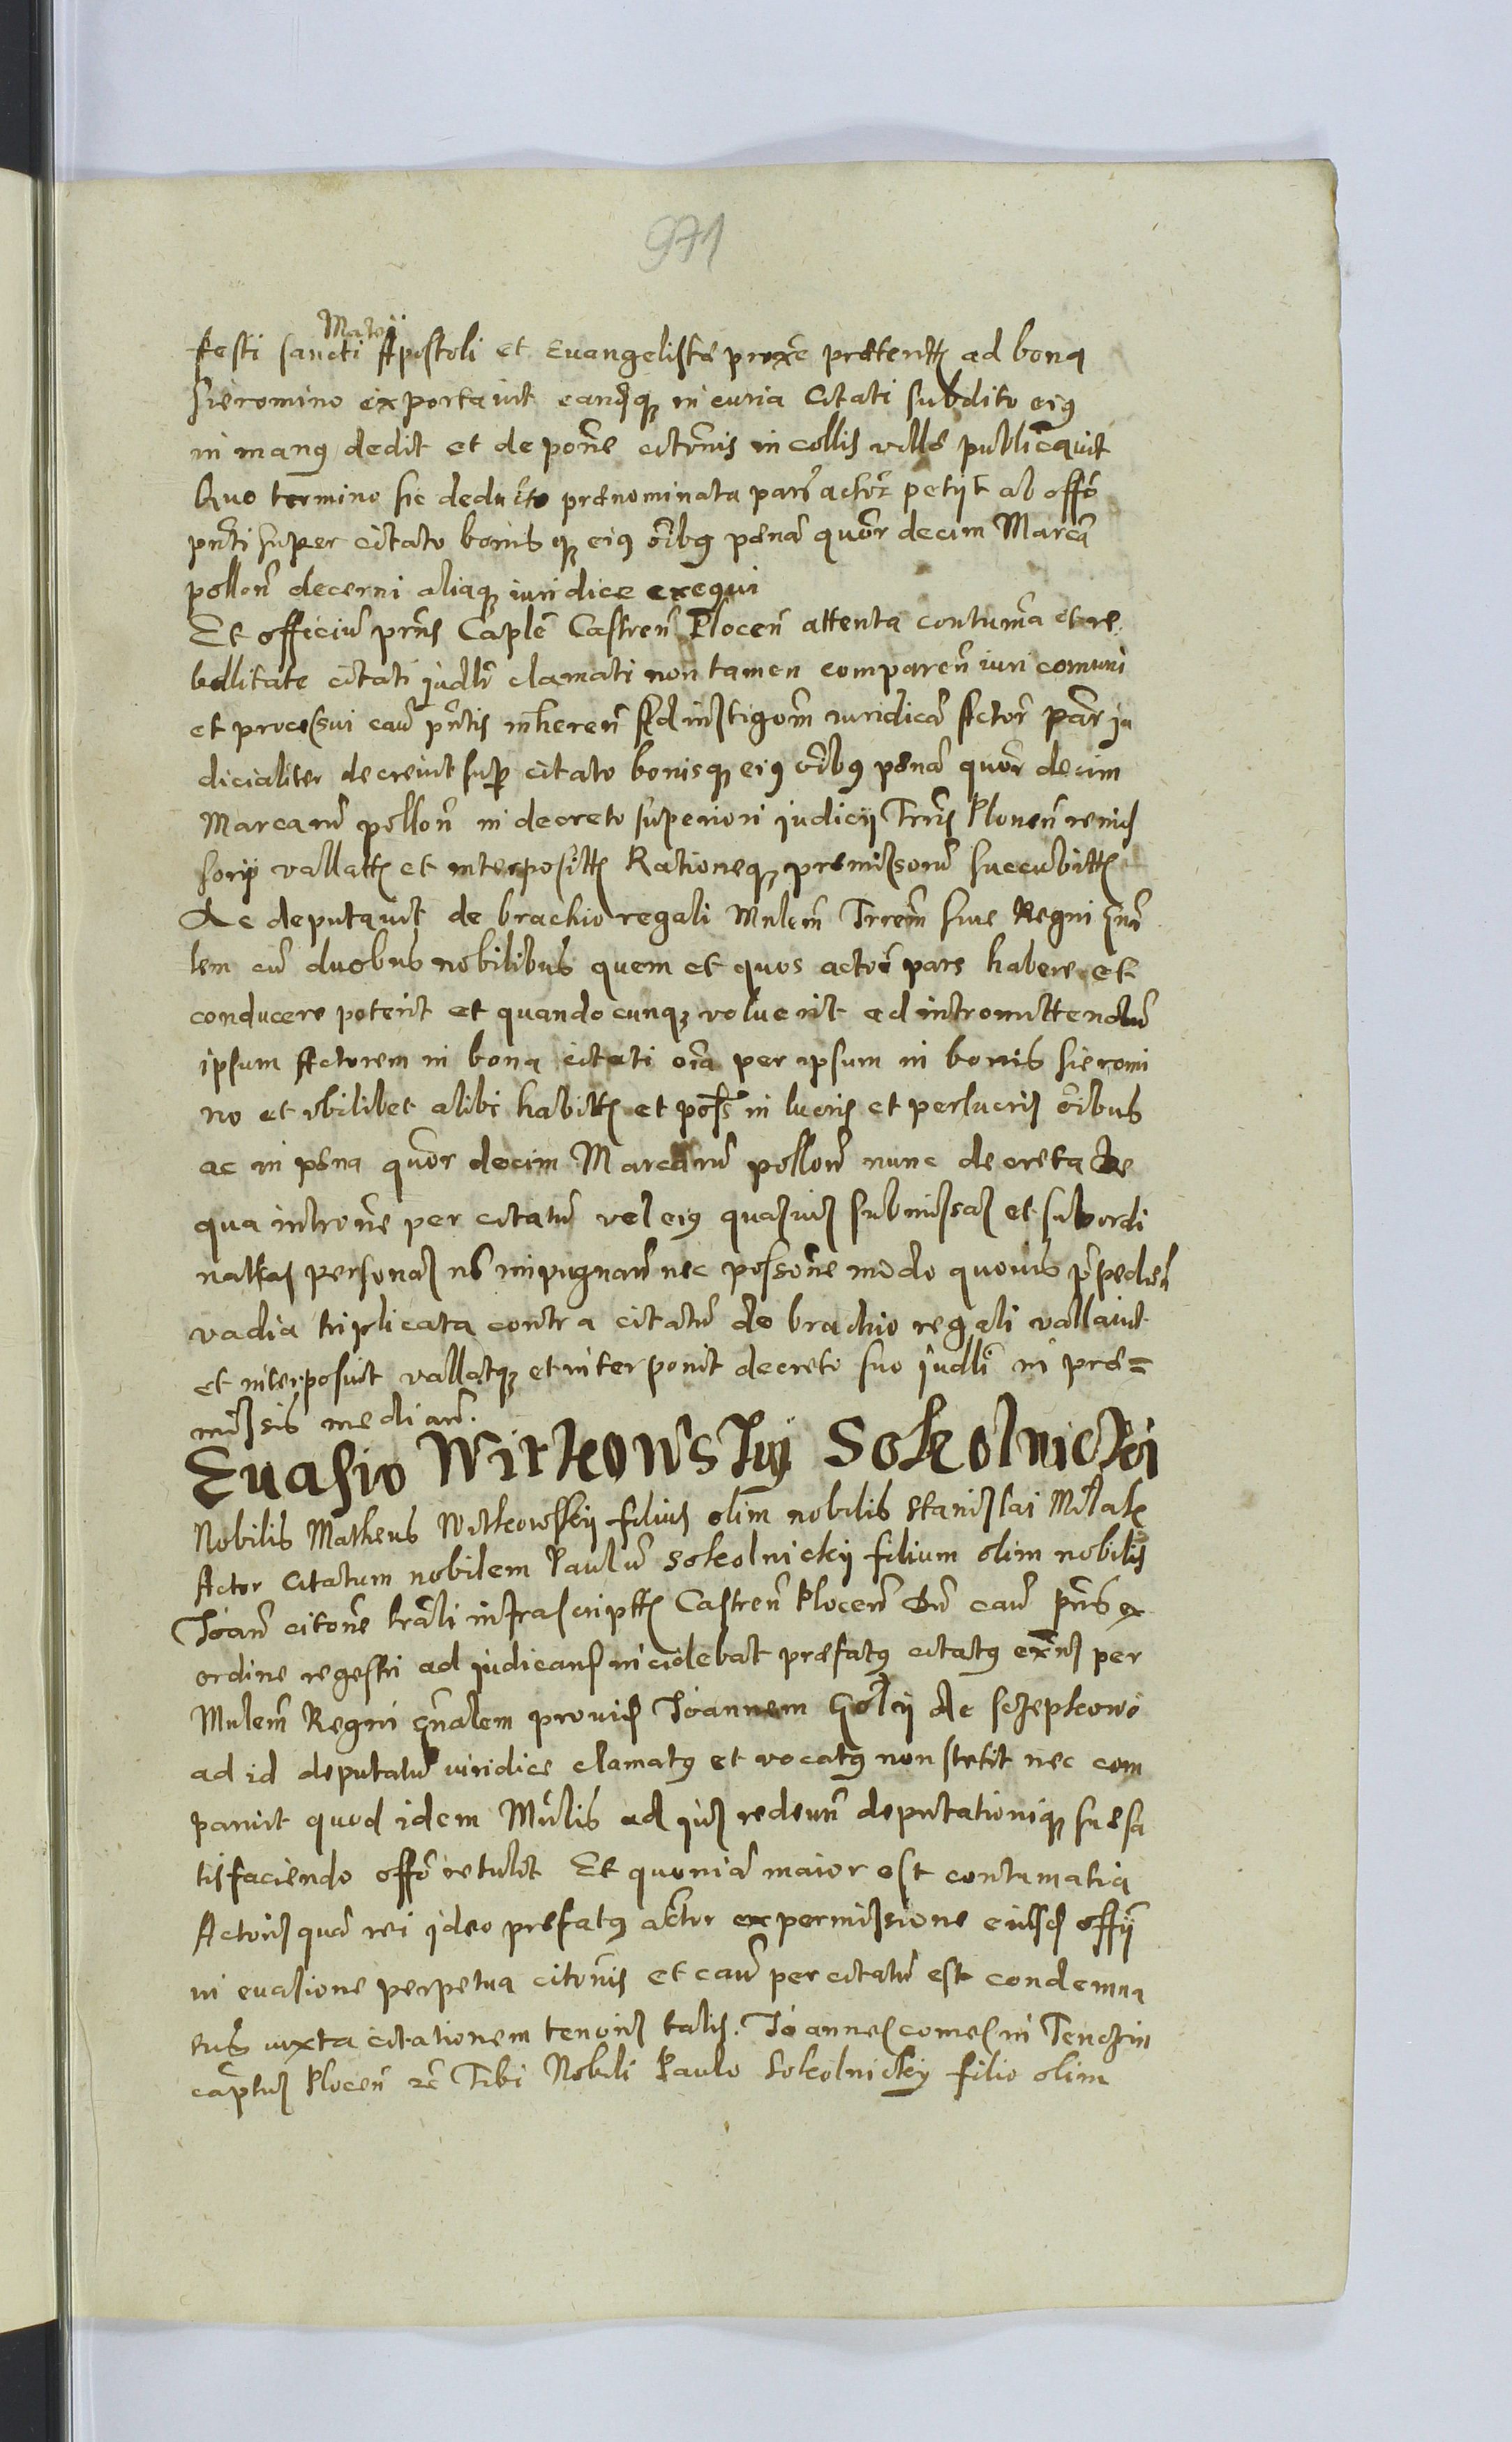 971
Matei
festi sancti Apostoli et Evangelistæ proxe præteritt ad bona
Sieromino exportavit eandqꝫ in curia Citati subdito eiꝰ
in manꝰ dedit et de pone citonis in collis villæ publicavit
Quo termino sic deducto prænominata pars actor petijt ab offo
pnti super citato bonis qꝫ eiꝰ oibꝰ pænā quor decim Marcā
pollon decerni aliaqꝫ iuridice exequi
Et officiū prns Caple Castren Plocen attenta contuma et re
bellitate citati judlr clamati non tamen comparen iuri comuni
et processui cau pntis inheren Ad instigom iuridicā Actor par ju
dicialiter decrevit sup citato bonisqꝫ eiꝰ oibꝰ pænā quor decim
Marcarū pollon in decreto superiori judicij Trris Plonen remis
sorij vallatt et interpositt Rationeqꝫ præmissorū succubitt
Ac deputavit de brachio regali Mnlem Trrem sive Regni gna
lem cū duobus nobilibus quem et quos actor pars habere et
conducere poterit et quandocunqꝫ voluerit ad intromittendū
ipsum Actorem in bona citati oia per ipsum in bonis Sieromi
no et ubilibet alibi habitt et poss in lucris et perlucris oibus
ac in pæna quor decim Marcarū pollon nunc decreta De
qua introne per citatū vel eiꝰ quasvis submissas et subordi
nattas personas no impugnan nec possone modo quovis ppedien
vadia triplicata contra citatū de brachio regali vallavit
et interposuit vallatqꝫ et interponit decreto suo judli in præ=
missis median.
Evasio Witkowskij Sokolnicki
Nobilis Matheus Witkowskij filius olim nobilis Stanislai Mlak
Actor Citatum nobilem Paulū Sokolnickij filium olim nobilis
Joan citone trali infrascriptt Castren Plocen Dū cau pns ex
ordine regestri ad judicand incidebat præfatꝰ citatꝰ exns per
Mnlem Regni gnalem provid Joannem Goły de Sczepkowo
ad id deputatū iuridice clamatꝰ et vocatꝰ non stetit nec com
paruit quod idem Mnlis ad jus redeun deputationiqꝫ suæ sa
tisfaciendo offo retulit Et quoniā maior est contumatia
Actoris quā rei ideo præfatꝰ actor ex permissione eiusd offij
in evasione perpetua citonis et cau per citatū est condemna
tus iuxta citationem tenoris talis. Joannes comes in Tenczin
captus Plocen rc Tibi Nobili Paulo Sokolnickij filio olim